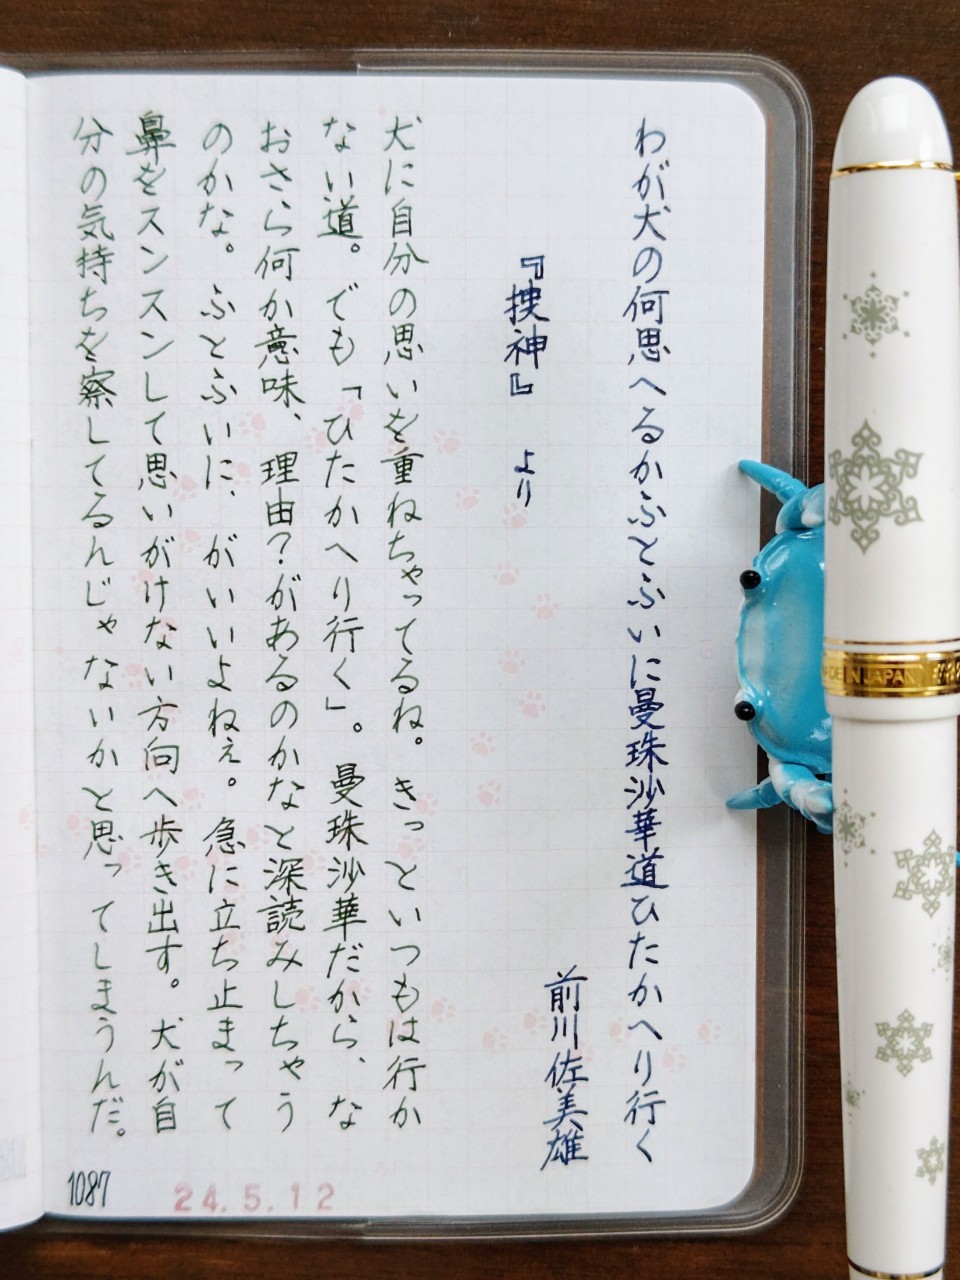 わが犬の何思へるかふとふいに曼珠沙華道ひたかへり行く
前川佐美雄
『捜神』 より
犬に自分の思いを重ねちゃってるね。きっといつもは行か
ない道。でも「ひたかへり行く」。曼珠沙華だから、な
おさら何か意味、理由？があるのかなと深読みしちゃう
のかな。ふとふいに、がいいよねぇ。急に立ち止まって
鼻をスンスンして思いがけない方向へ歩き出す。犬が自
分の気持ちを察してるんじゃないかと思ってしまうんだ。
1087
24.5.12
JAPAN